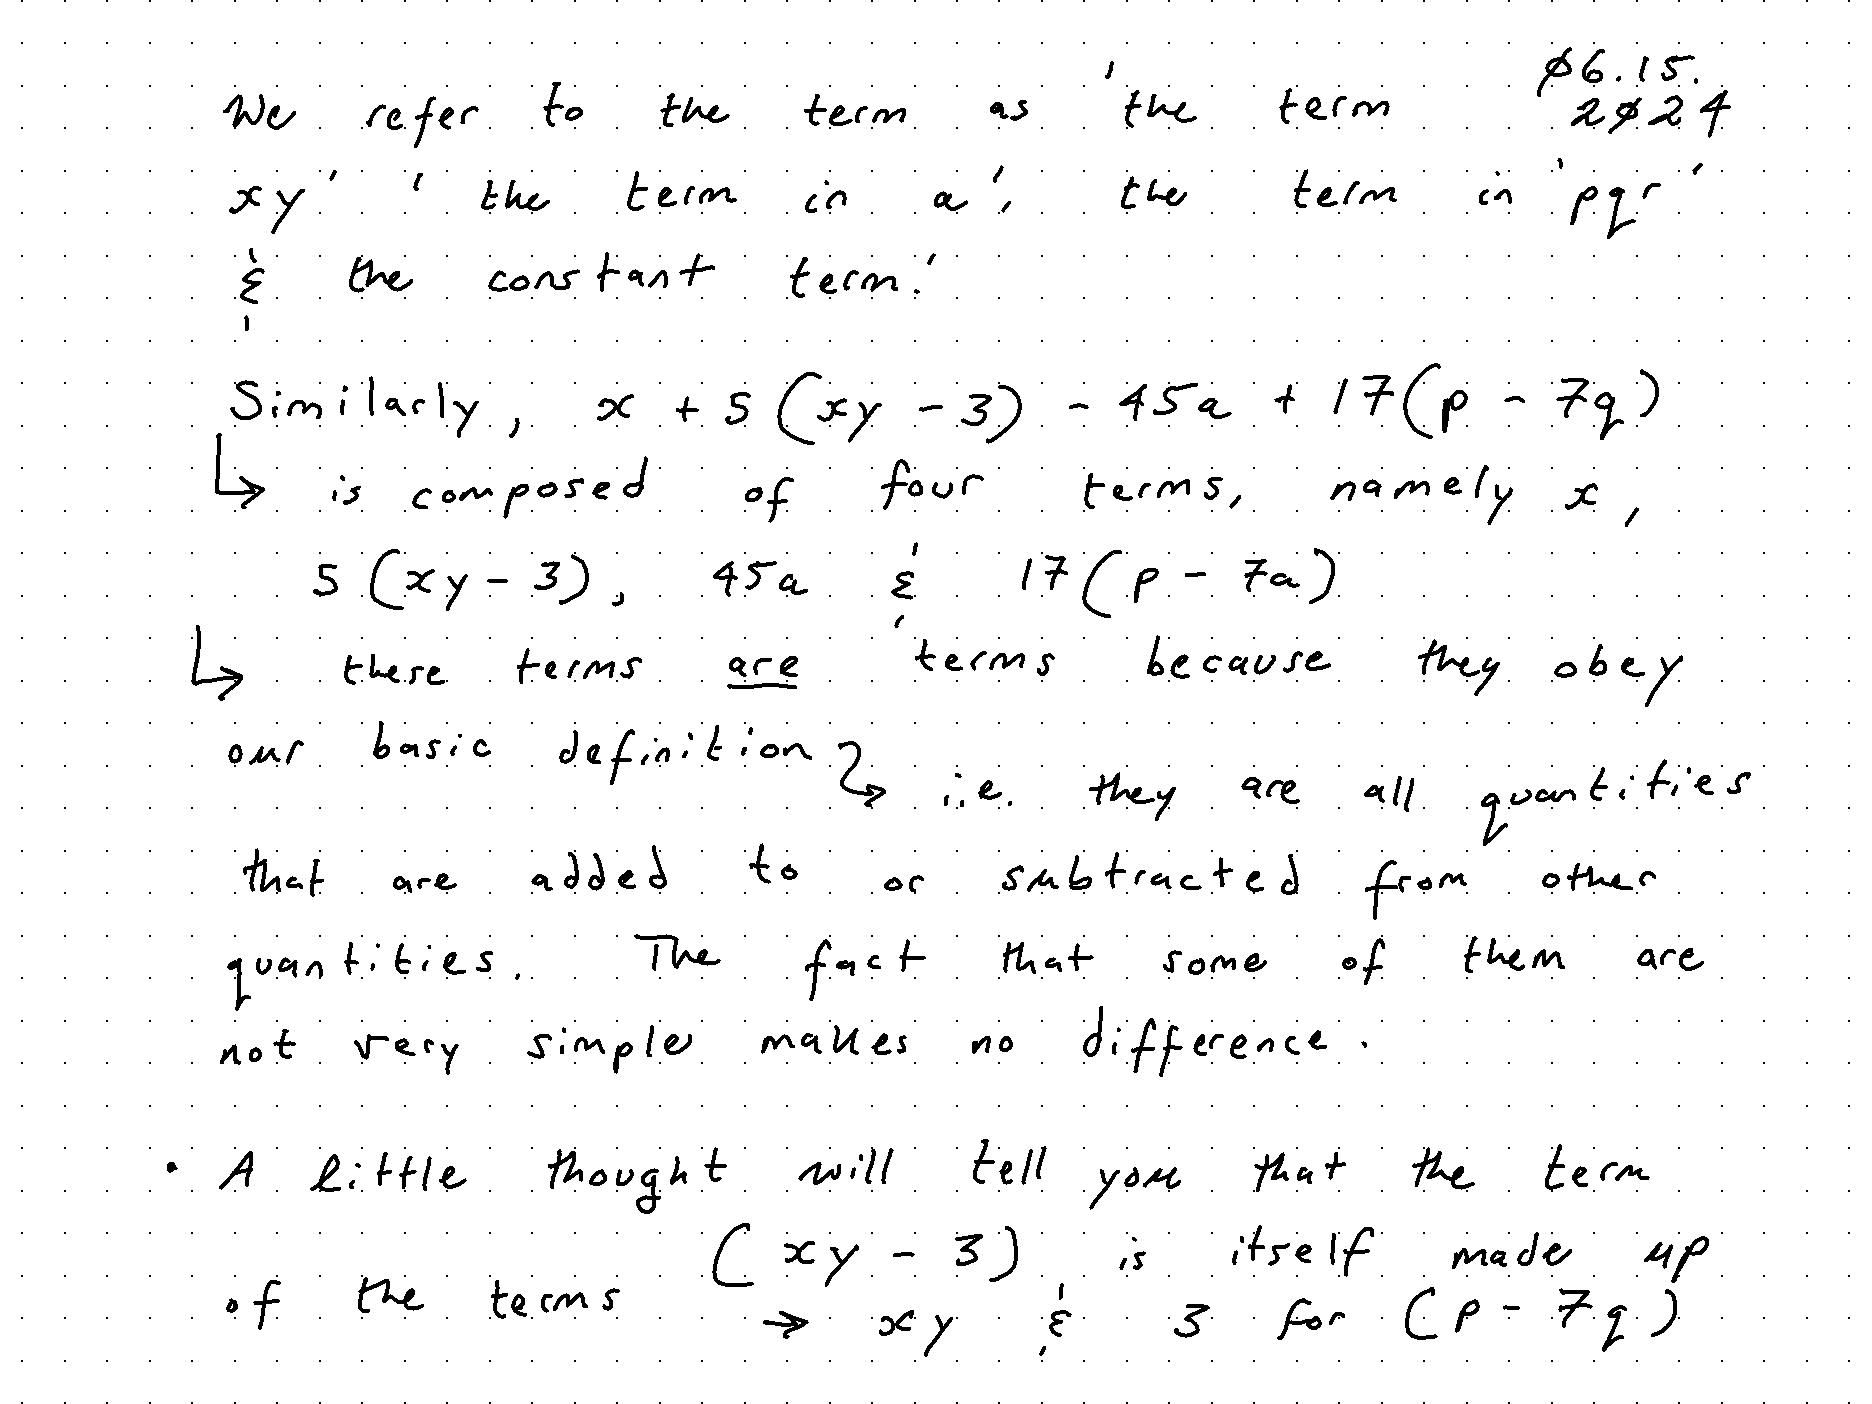 ø6.15.
2ø24
We refer to the term as 'the term
xy' 'the term in a', the term in 'pqr'
& the constant term.'
Similarly, x + 5(xy - 3) - 45a + 17(p - 7q)
↳ is composed of four terms, namely x,
5(xy - 3), 45a & 17(p - 7a)
↳ these terms are terms because they obey
our basic definition ↴ i.e. they are all quantities
that are added to or subtracted from other
quantities. The fact that some of them are
not very simple makes no difference.
• A little thought will tell you that the term
(xy - 3) is itself made up
of the terms → xy & 3 for (p - 7q)